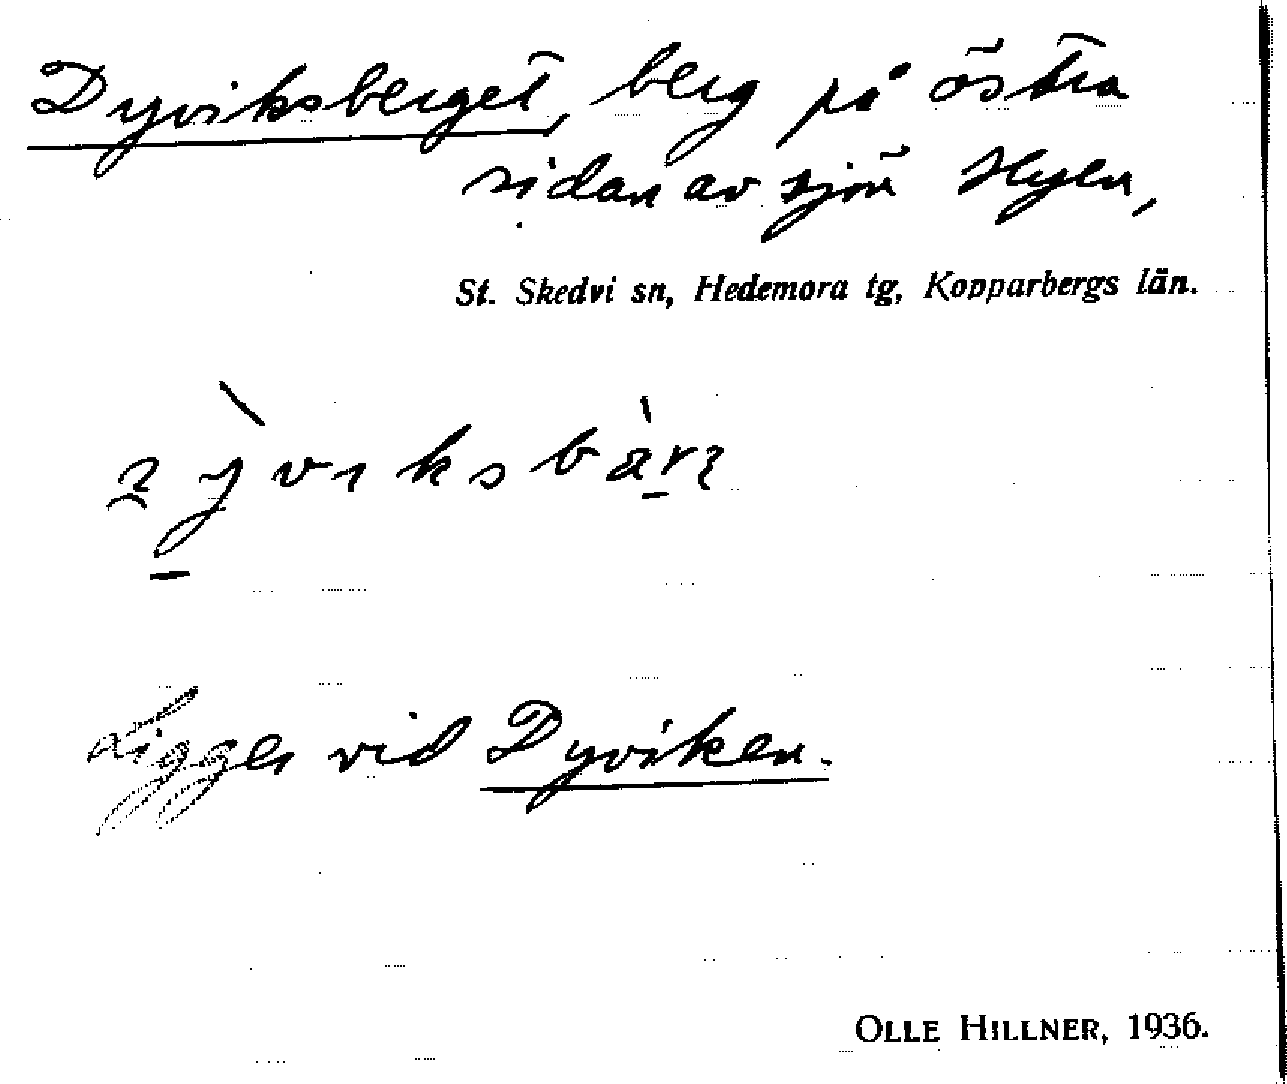 Dyviksberget, berg på östra
sidan av sjön Hyen,
St. Skedvi sn, Hedemora tg, Kopparbergs län.
Ligger vid Dyviken.
OLLE HILLNER, 1936.